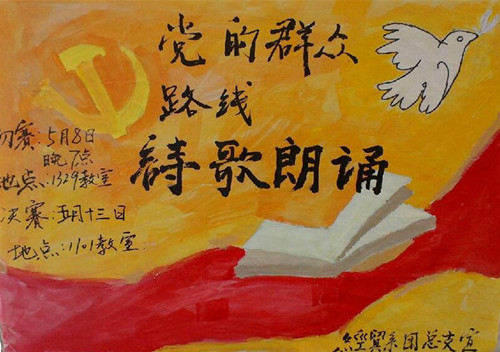 党的群众
路线
詩歌朗诵
初赛:5月8日
晚7点
地点:1329教室
决赛:五月十三日
地点:1101教室
經貿系团总支宣